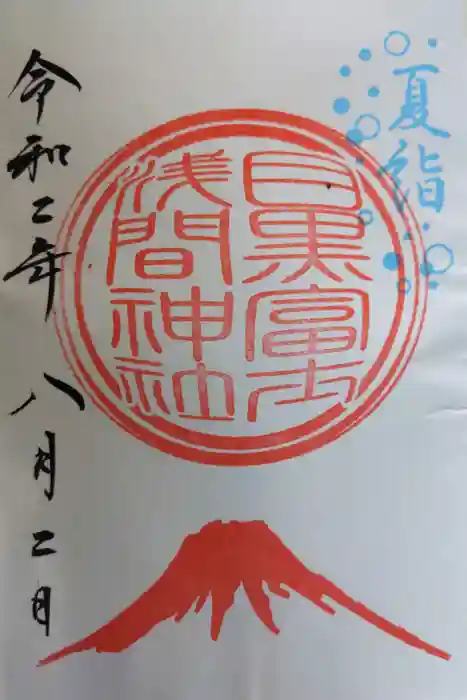 夏詣
目黒富士
浅間神社
令和二年 八月二日